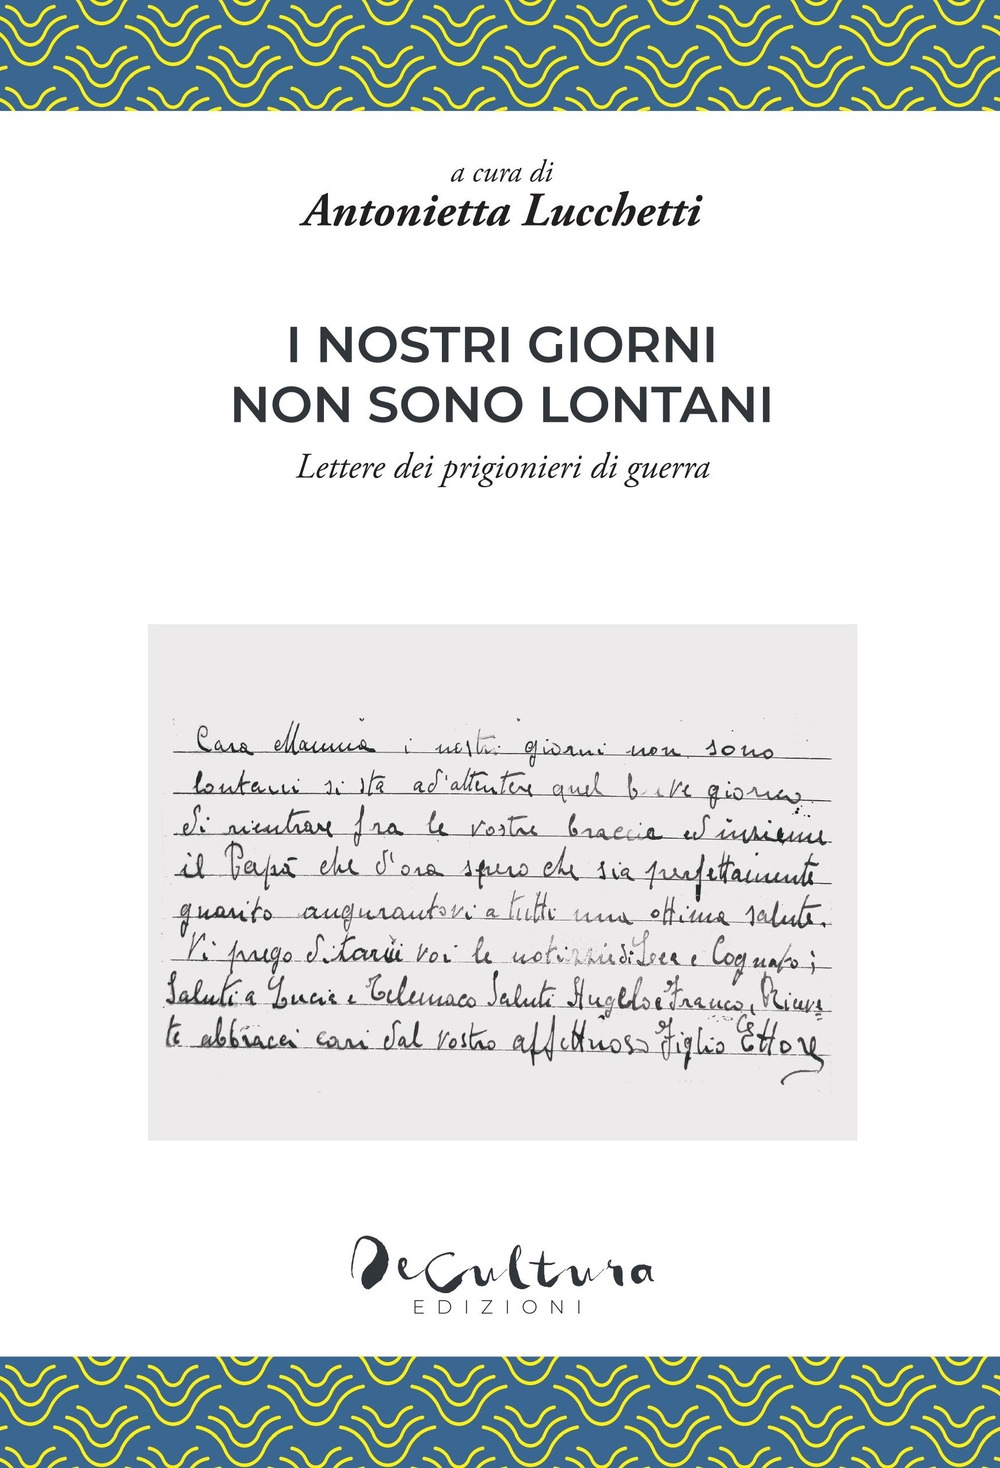 a cura di
Antonietta Lucchetti
I NOSTRI GIORNI
NON SONO LONTANI
Lettere dei prigionieri di guerra
Cara Mamma i nostri giorni non sono
lontani si sta ad'attentere quel breve giorno
di rientrare fra le vostre braccia ed insieme
il Papà che d'ora spero che sia perfettamente
guarito augurantovi a tutti una ottima salute.
Vi prego di voi le notizzie di e Cognato;
Saluti a Lucia e Telemaco Saluti e Franco, Riceve
te abbracci cari dal vostro affettuoso Figlio Ettore
DeCultura
EDIZIONI